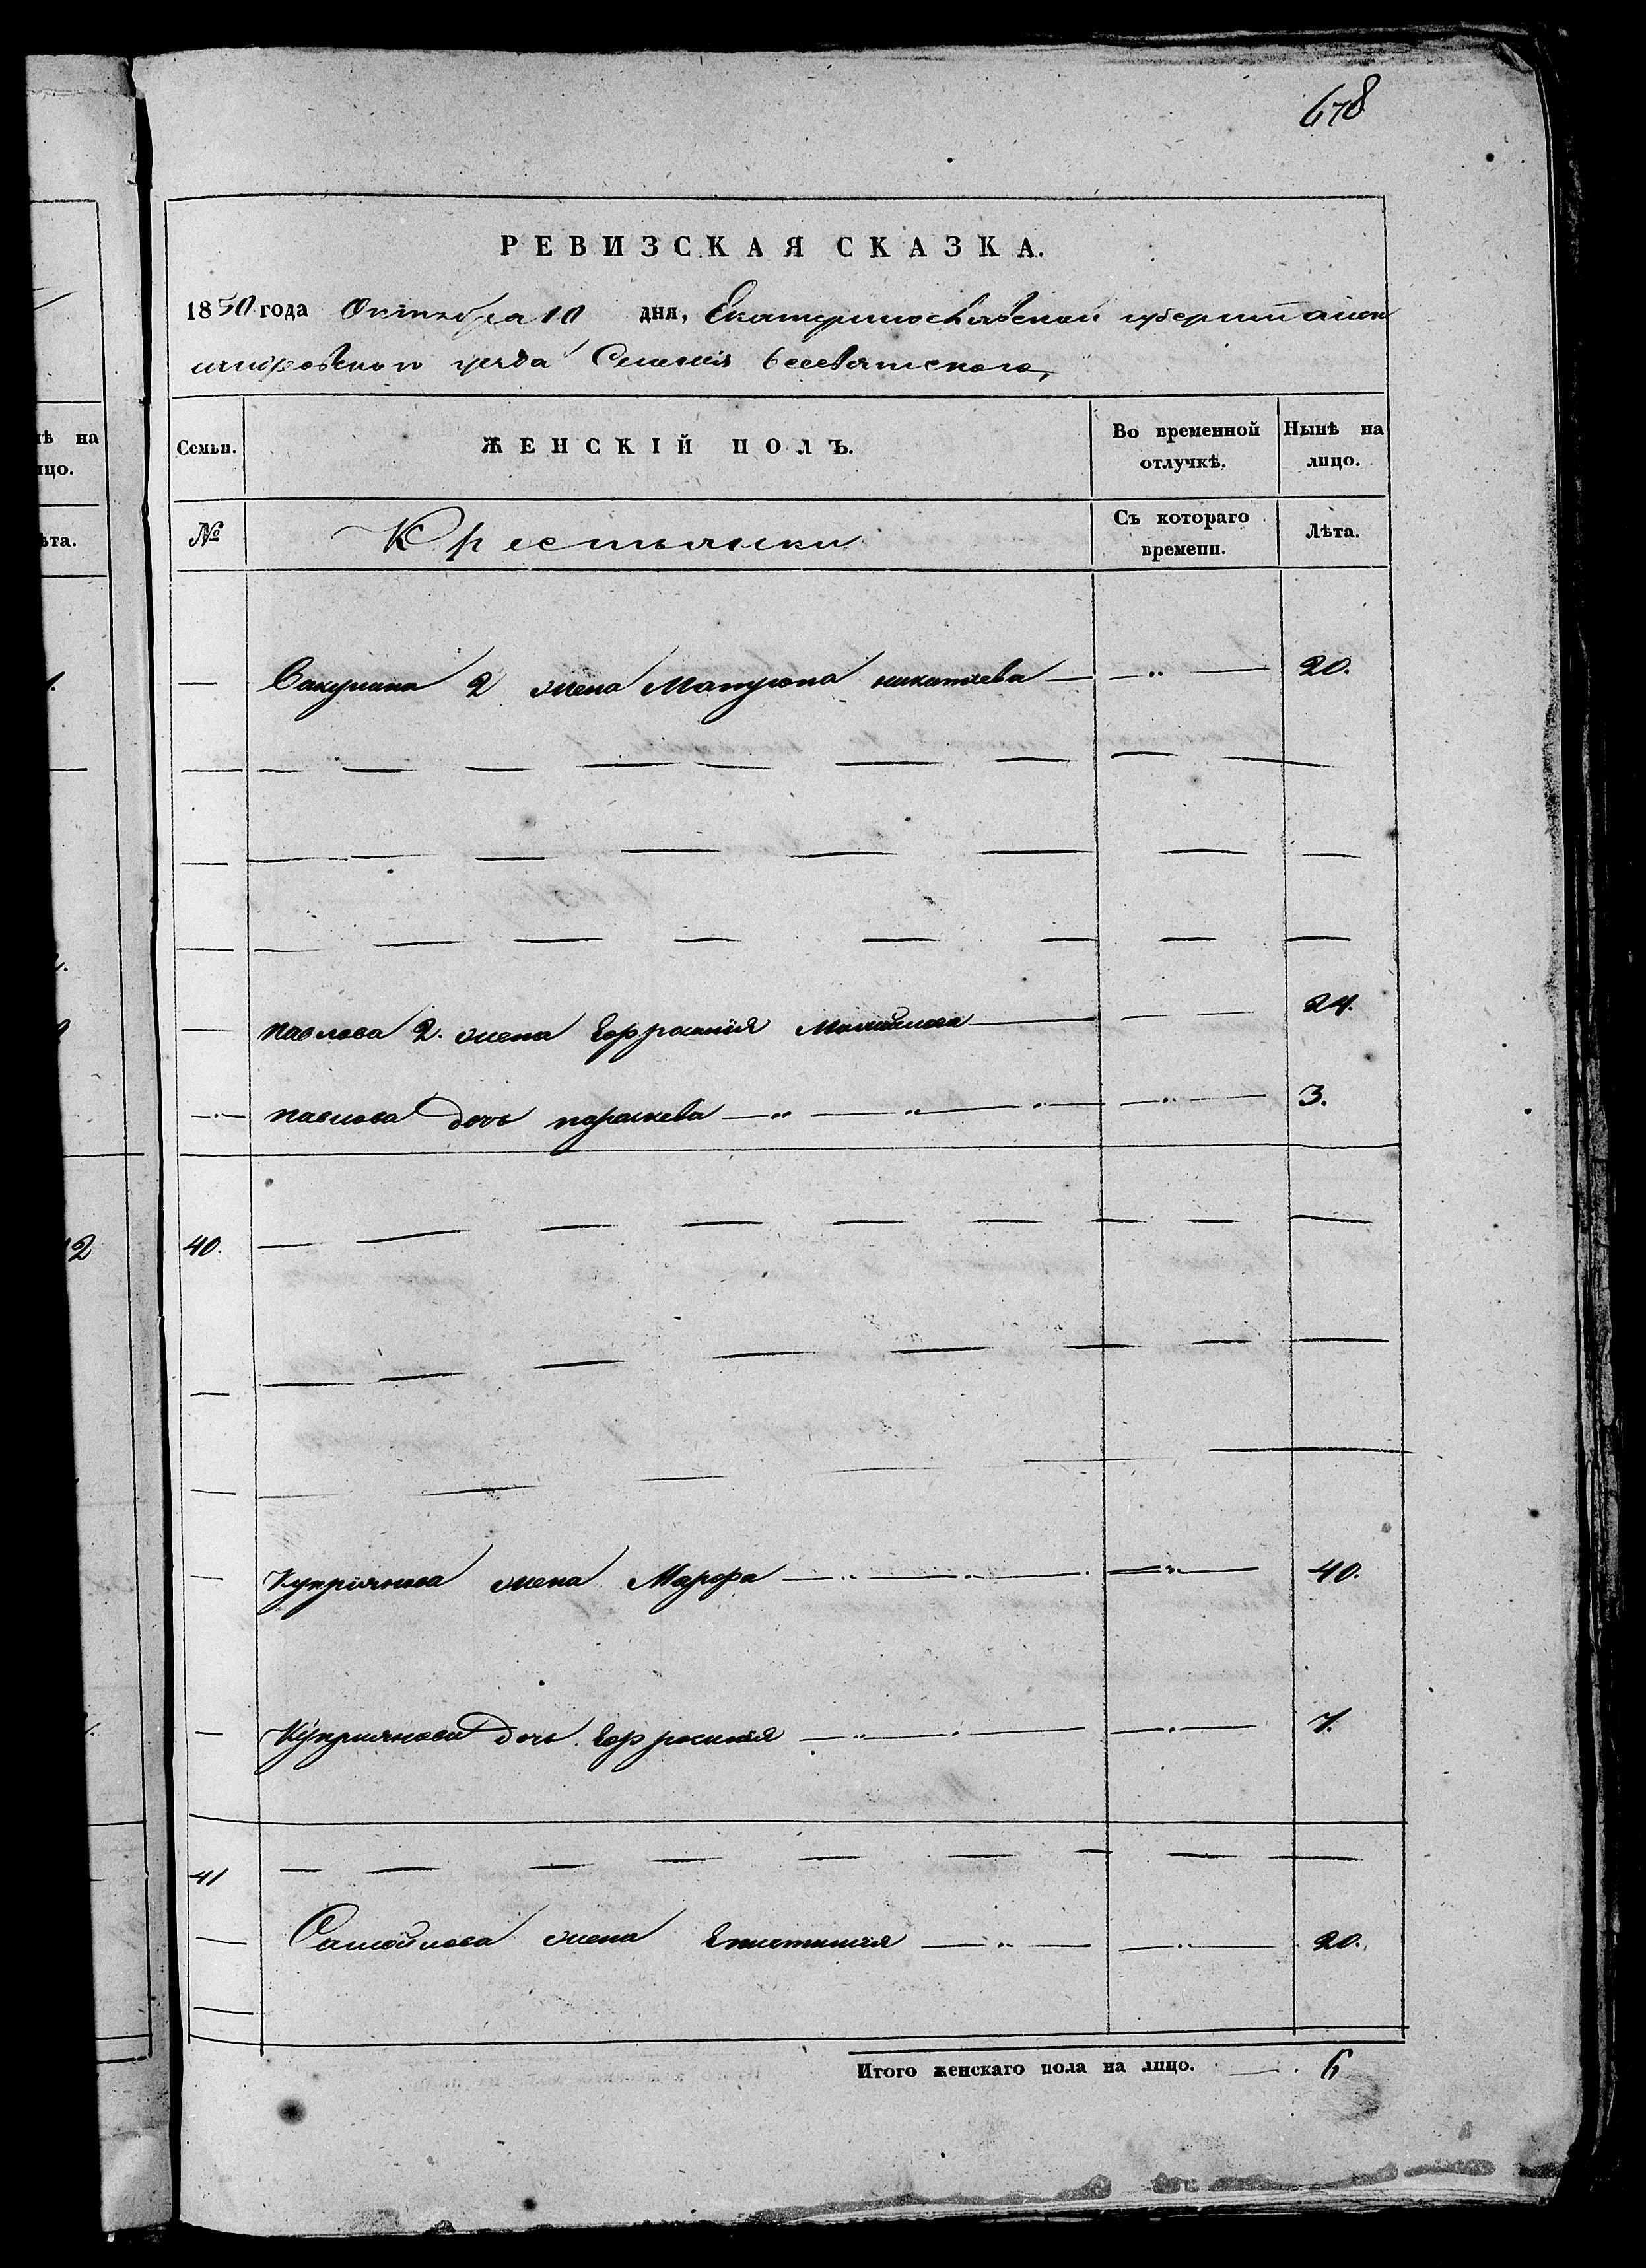 678
РЕВИЗСКАЯ СКАЗКА.
1850 года Октября 10 дня, Екатеринославской губернии Алек
сандровского уезда Селения Всесвятского,
Семьи. ЖЕНСКІЙ ПОЛЪ. Во временной отлучкѣ. Нынѣ на лицо.
№ Крестьянки Съ котораго времени. Лѣта.
2 жена Матрона никитаева 20.
павлова 2. жена Ефросинія 24.
павлова дочь параскева 3.
40.
Куприянова жена Марфа 40.
Куприянова дочь Ефросинія 7.
41
Самойлова жена Епистимия 20.
Итого женскаго пола на лицо. 6